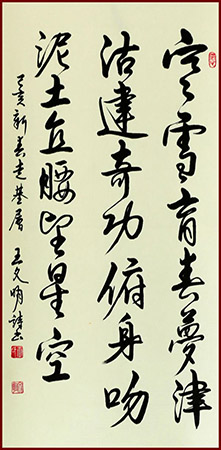 寒雪育春夢津
沽建奇功俯身吻
泥土直腰望星空
新春走基層 王文明詩書